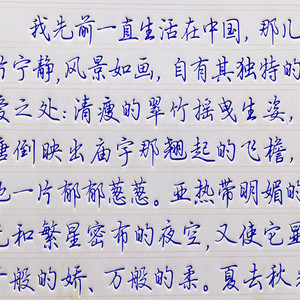 我先前一直生活在中国,那儿
片宁静,风景如画,自有其独特的
爱之处:清瘦的翠竹摇曳生姿,
倒映出庙宇那翘起的飞檐,
一片郁郁葱葱。亚热带明媚的
和繁星密布的夜空,又使它显
般的娇、万般的柔。夏去秋